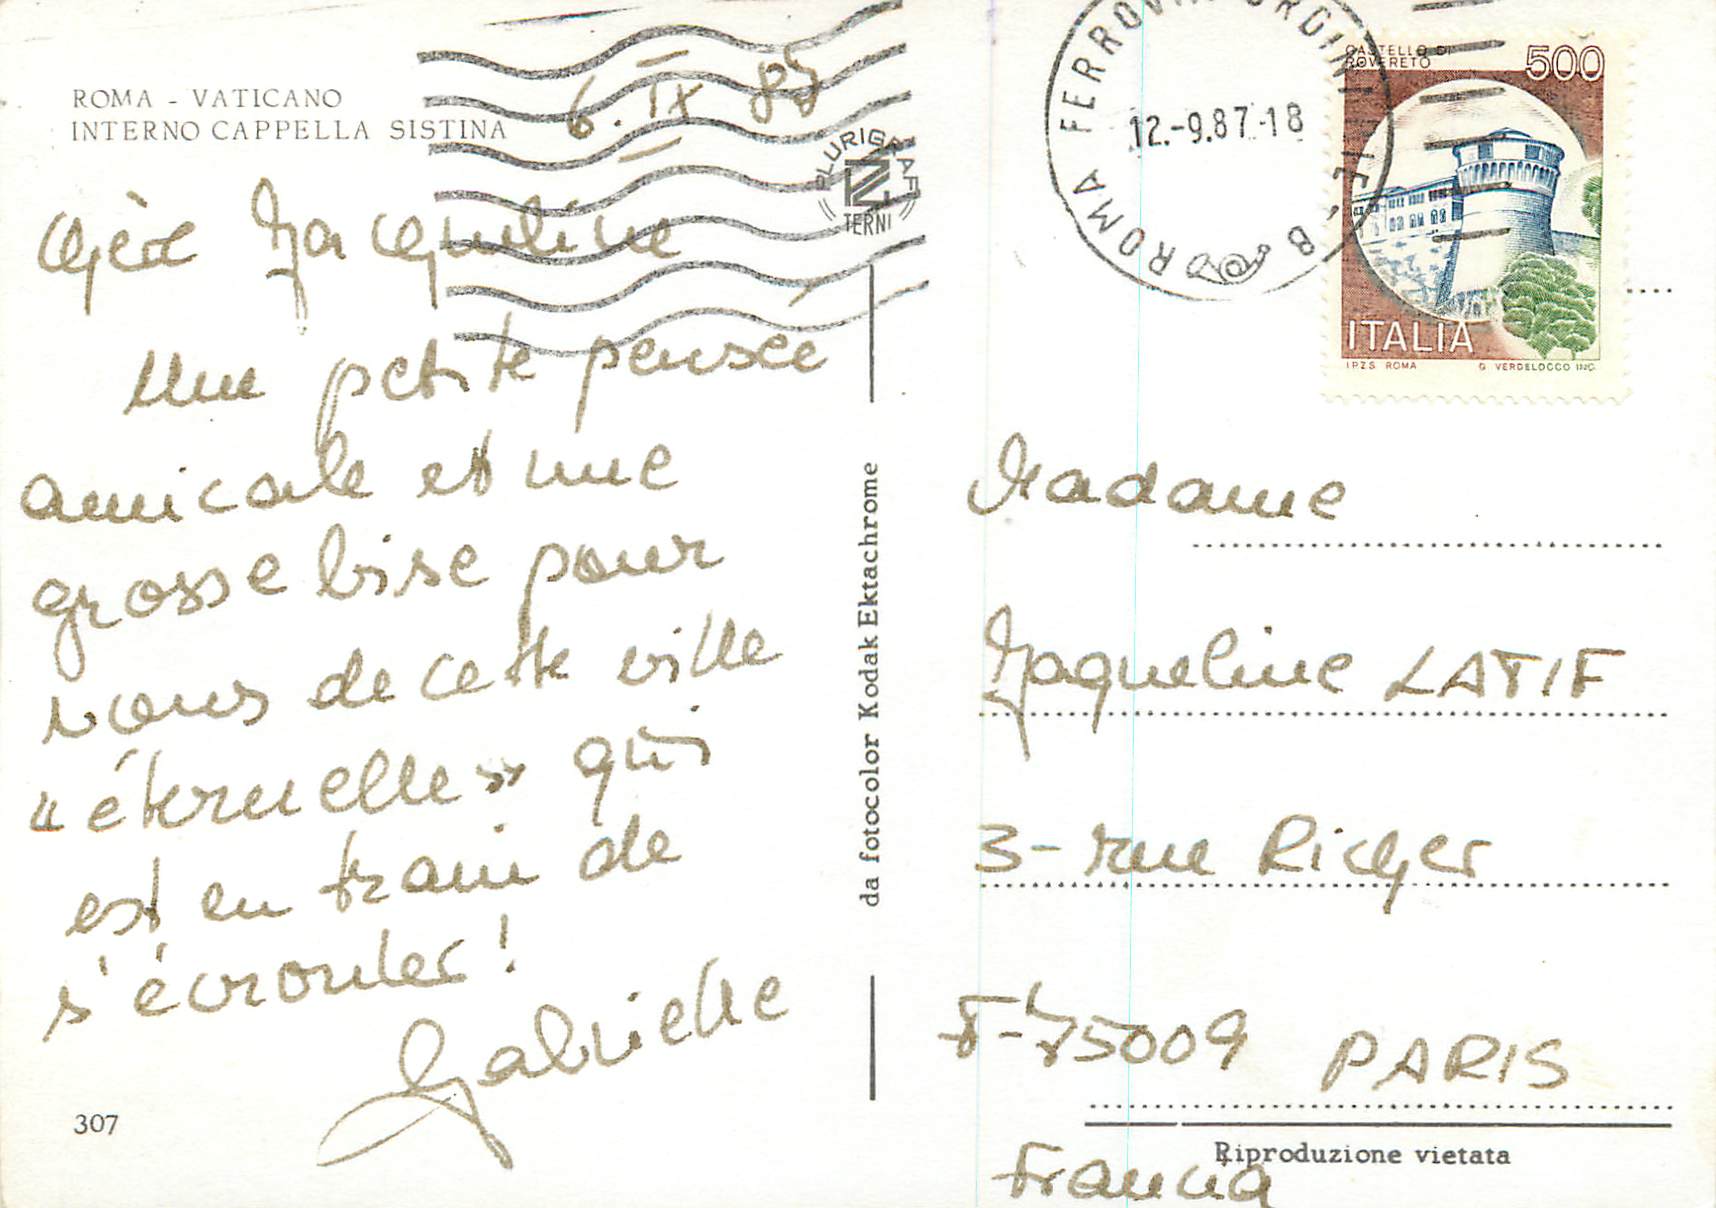 ROMA - VATICANO
INTERNO CAPPELLA SISTINA
6. IX 87
Chère Jacqueline
Une petite pensée
amicale et une
grosse bise pour
vous de cette ville
"éternelle" qui
est en train de
s'écrouler !
Gabrielle
307
PLURIGRAF
TERNI
da fotocolor Kodak Ektachrome
ROMA FERROVIA
12.-9.87-18
CASTELLO DI
ROVERETO
500
ITALIA
I.P.Z.S. ROMA
G. VERDELOCCO INC.
Madame
Jaqueline LATIF
3 - rue Richer
F-75009 PARIS
Riproduzione vietata
Francia